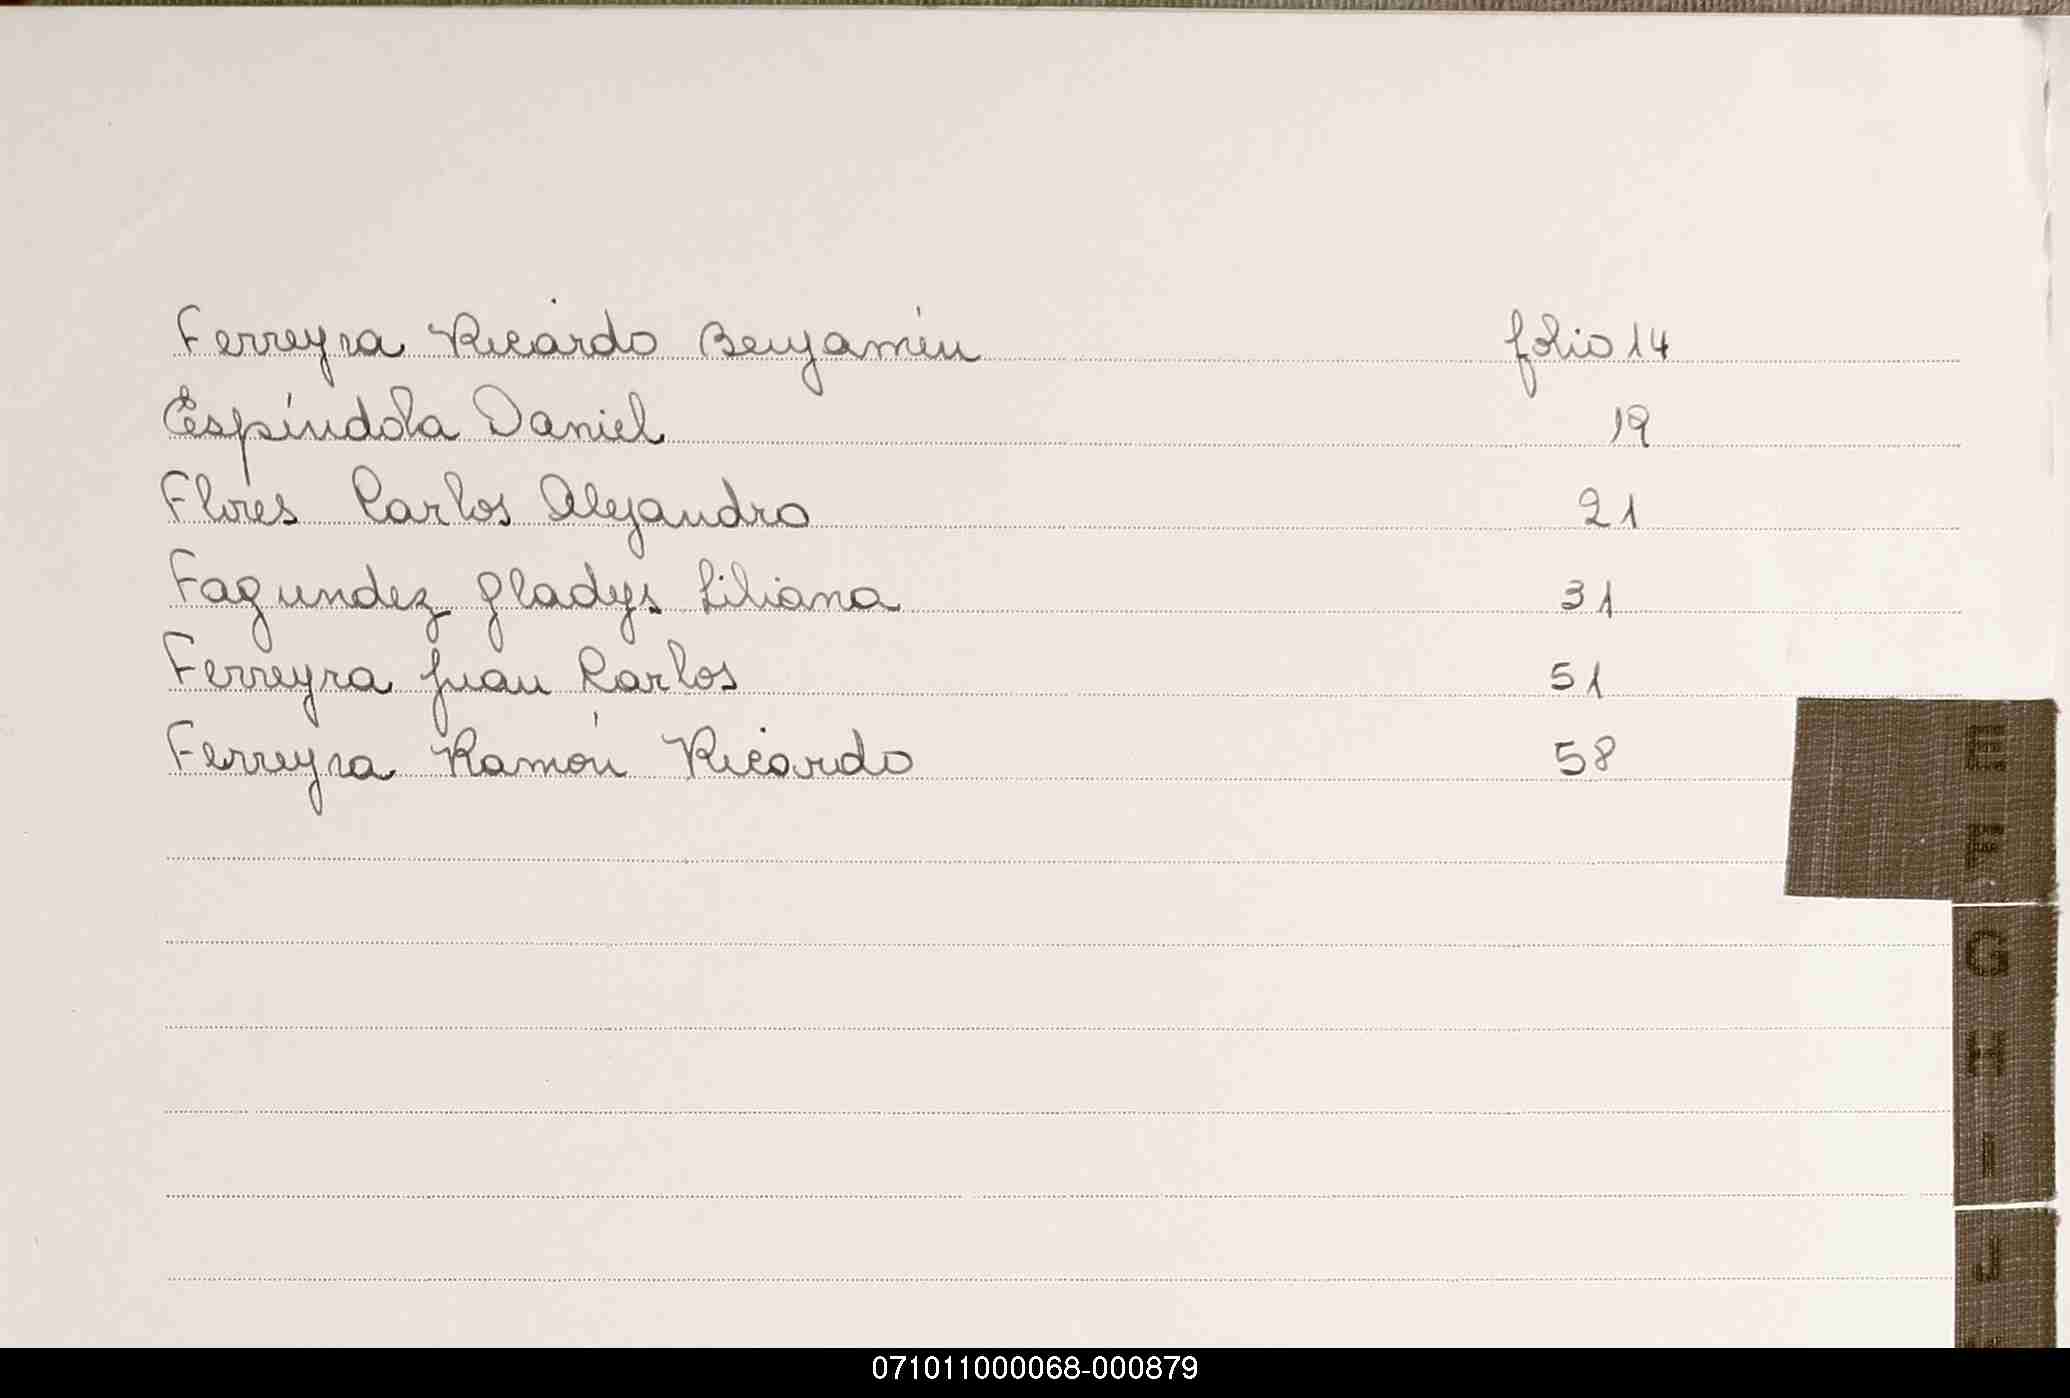 Ferreyra Ricardo Benjamín folio 14
Espíndola Daniel 19
Flores Carlos Alejandro 21
Fagundez Gladys Liliana 31
Ferreyra Juan Carlos 51
Ferreyra Ramón Ricardo 58
E
F
G
H
I
J
071011000068-000879